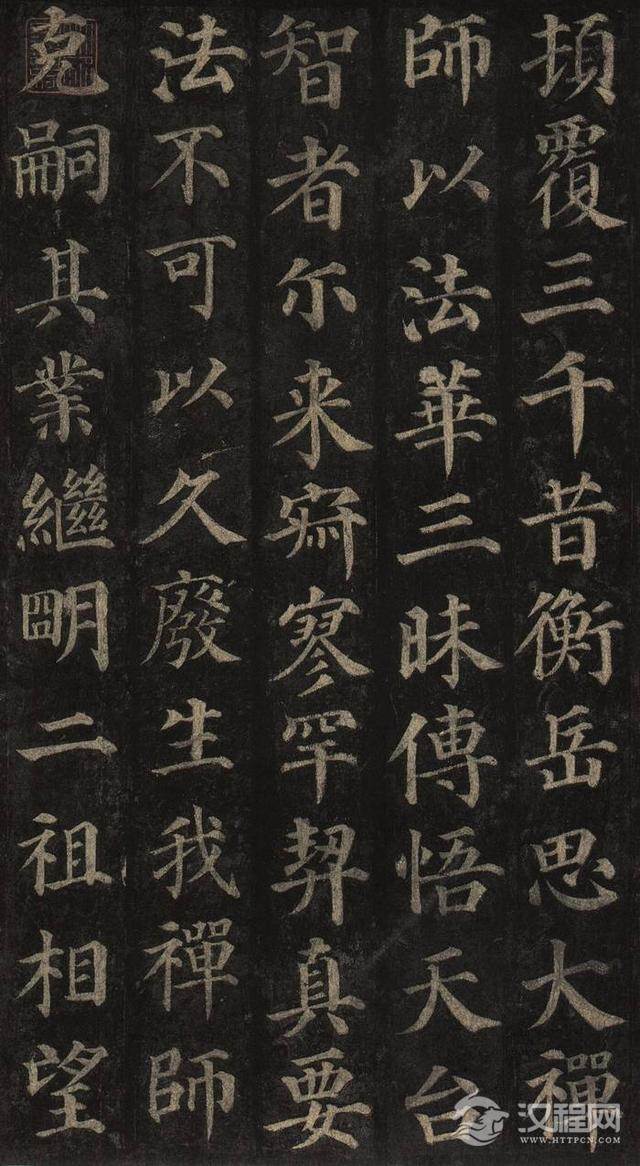 頃覆三千昔衡岳思大禪
師以法華三昧傳悟天台
智者尔来寂寥罕契真要
法不可以久廢生我禪師
克嗣其業繼明二祖相望
汉程网
WWW.HTTPCN.COM